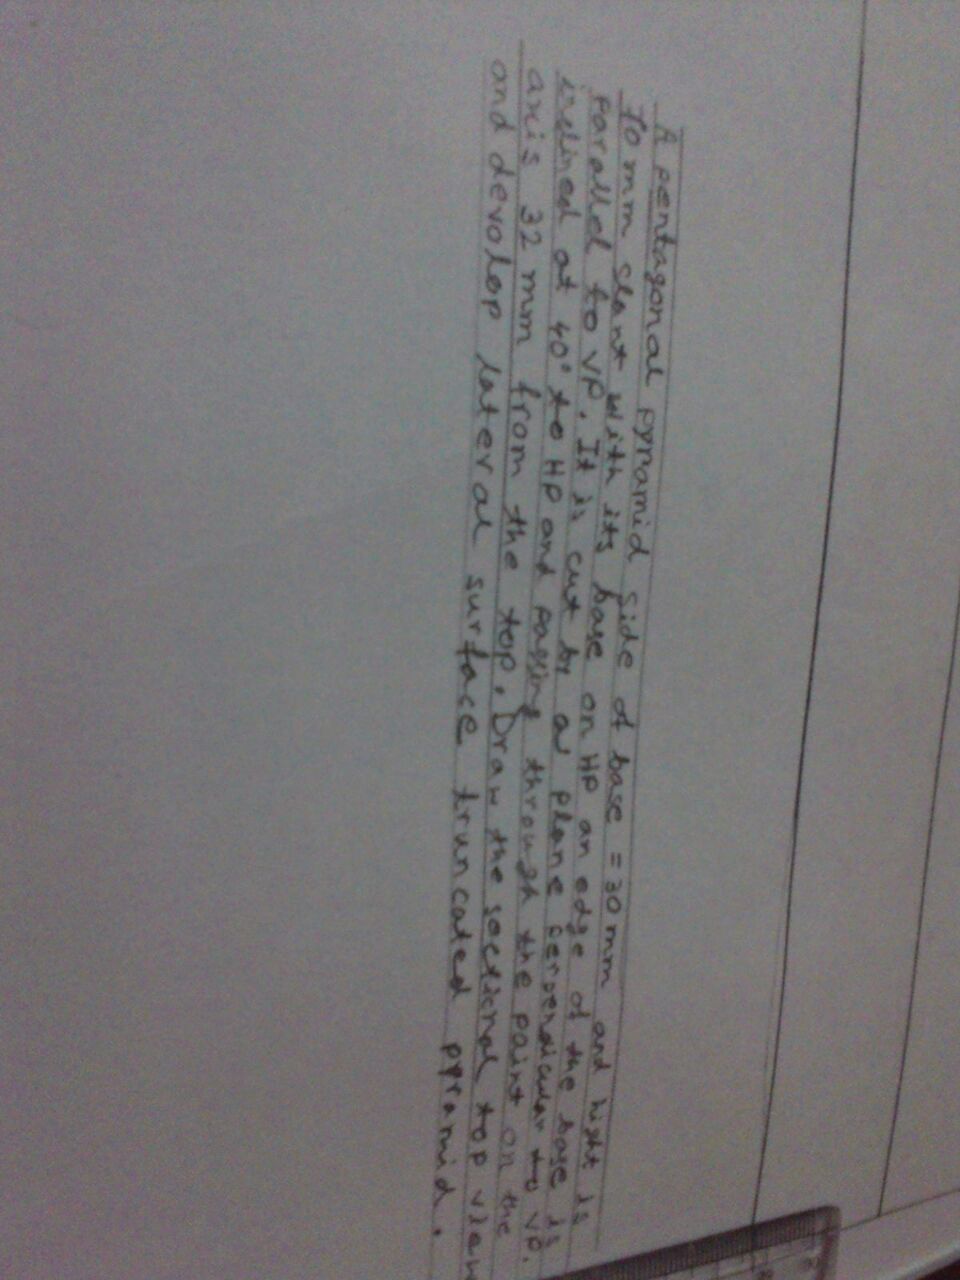 A pentagonal pyramid side of base = 30 mm and hight is
70 mm slant with its base on HP an edge of the base is
parallel to VP. It is cut by a plane perpendicular to VP.
inclined at 40° to HP and passing through the paint on the
axis 32 mm from the top. Draw the sectional top view
and devolop lateral surface truncated pyramid.